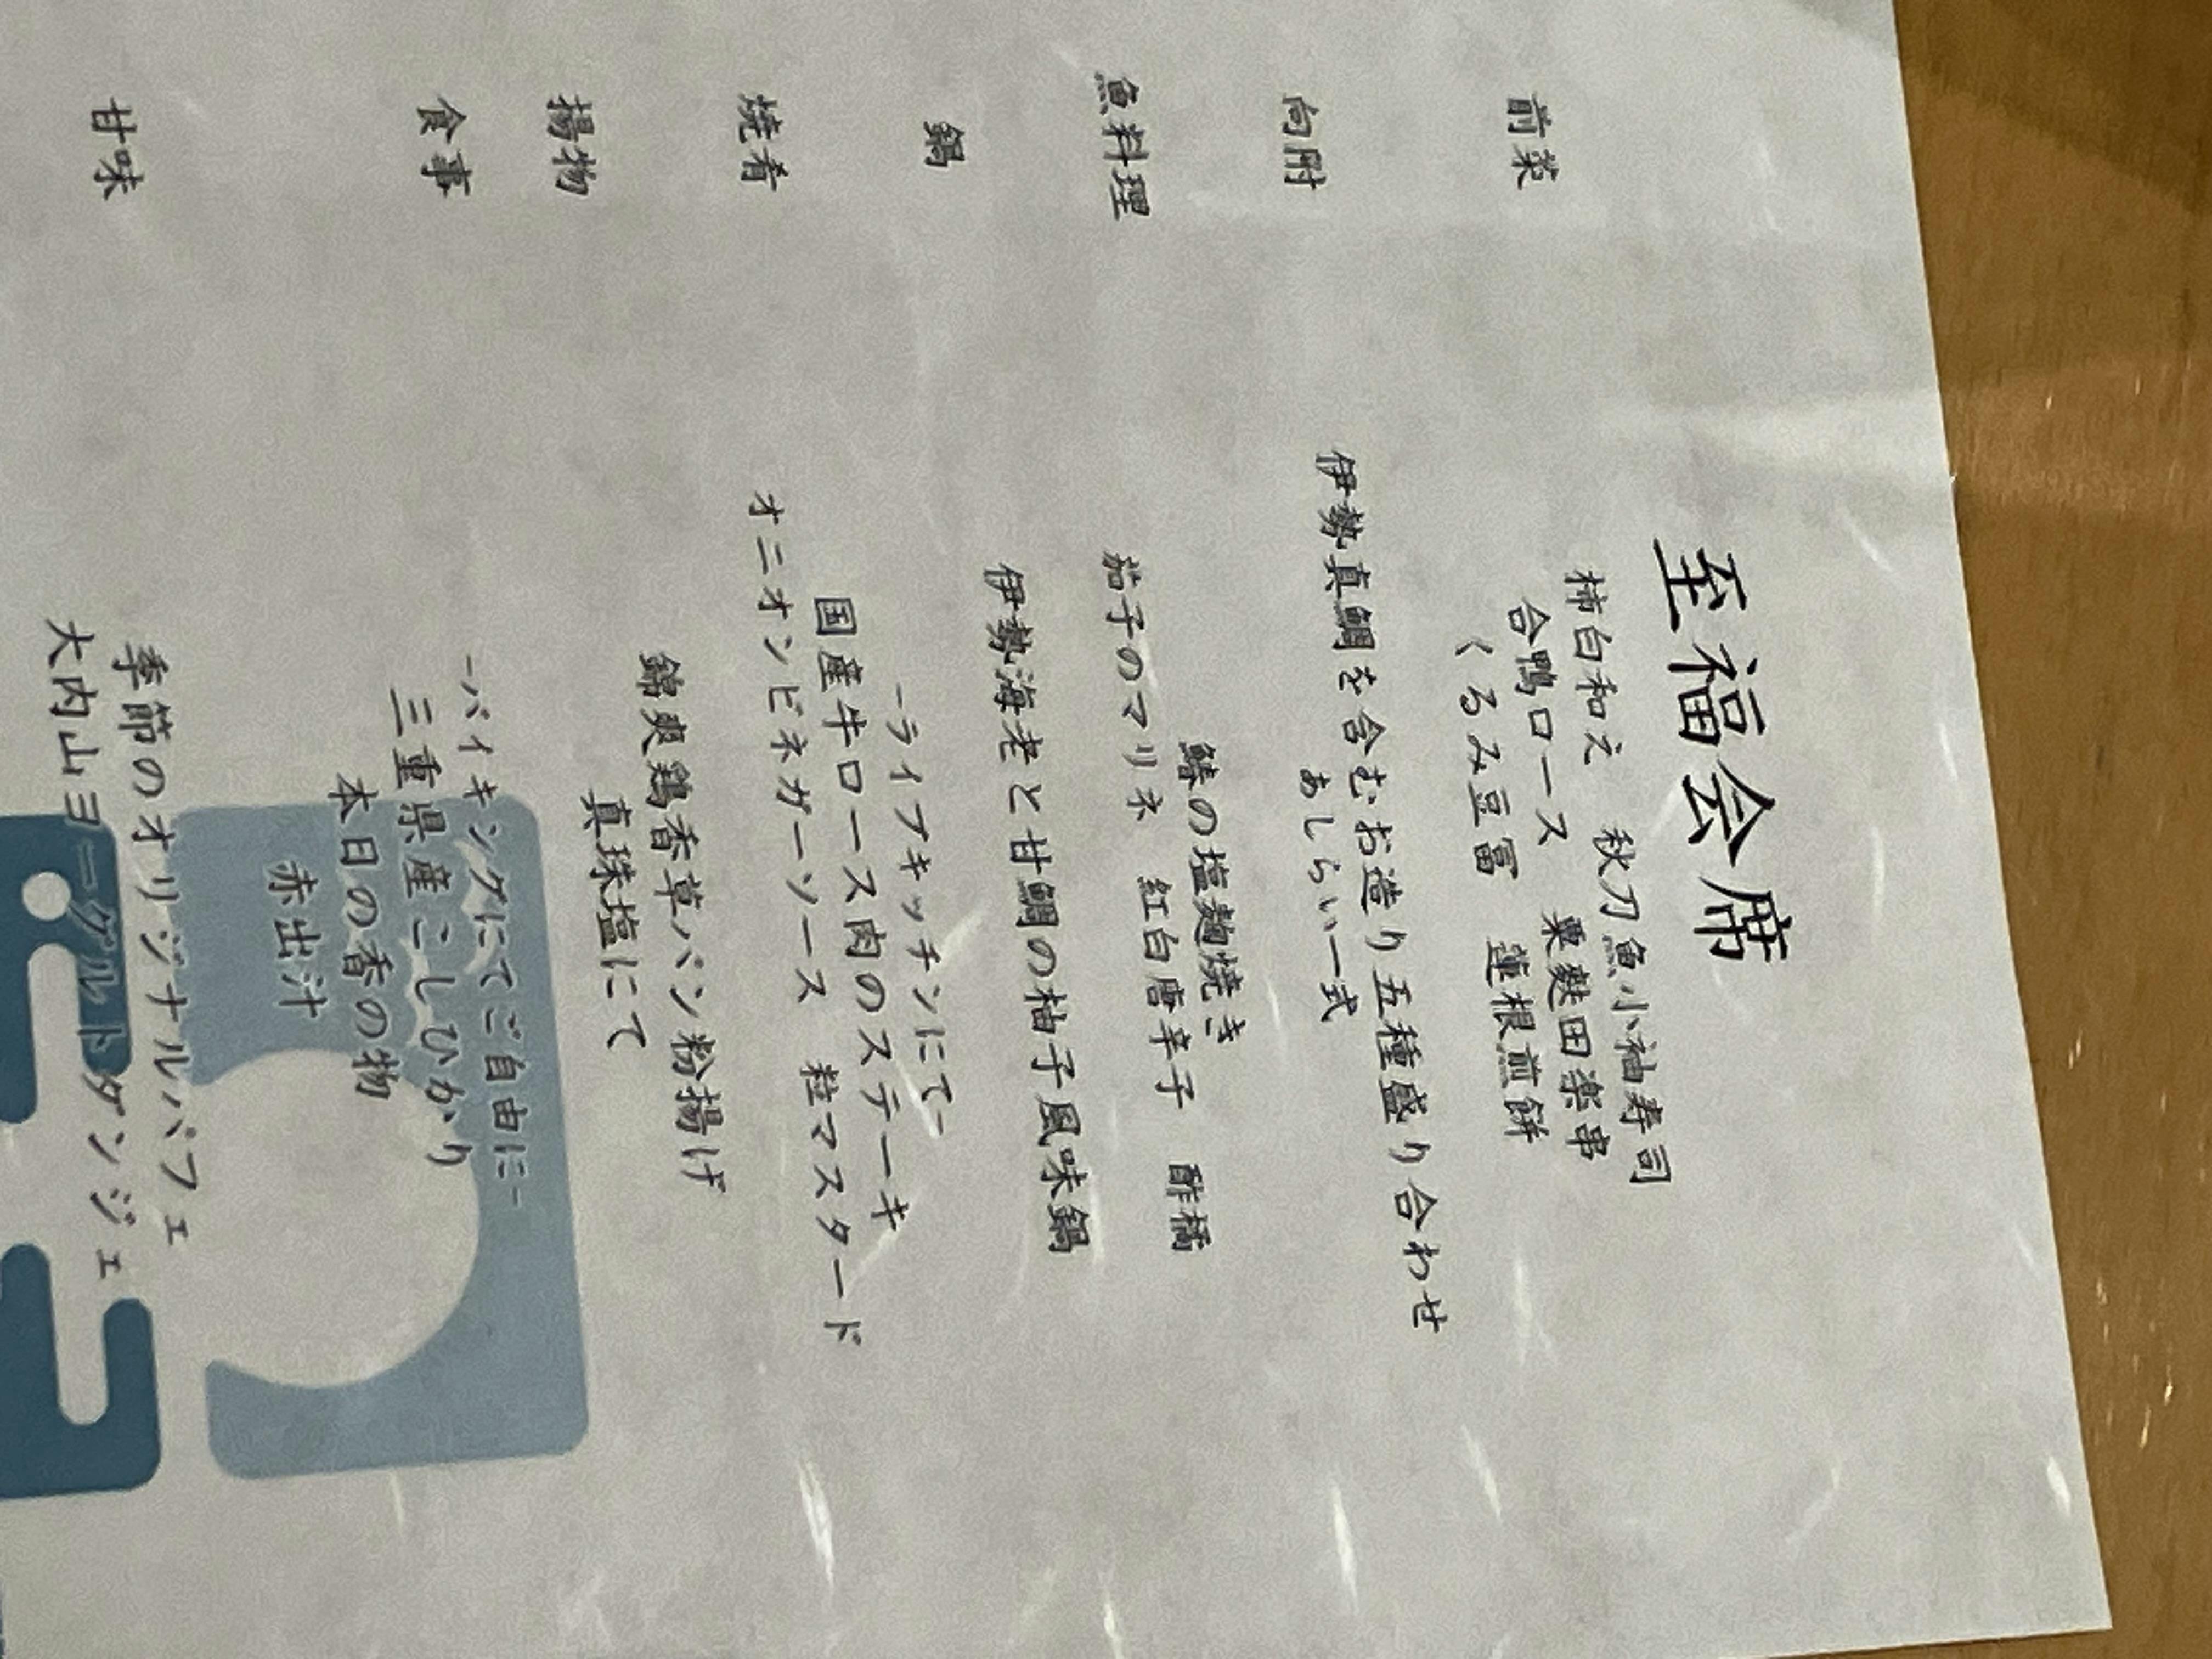 至福会席
前菜
柿白和え 秋刀魚小袖寿司
合鴨ロース 粟麩田楽串
くるみ豆冨 蓮根煎餅
向附
伊勢真鯛を含むお造り五種盛り合わせ
あしらい一式
魚料理
鰆の塩麹焼き
茄子のマリネ 紅白唐辛子 酢橘
鍋
伊勢海老と甘鯛の柚子風味鍋
焼肴
-ライブキッチンにて-
国産牛ロース肉のステーキ
オニオンビネガーソース 粒マスタード
揚物
錦爽鶏香草パン粉揚げ
真珠塩にて
食事
-バイキングにてご自由に-
三重県産こしひかり
本日の香の物
赤出汁
甘味
季節のオリジナルパフェ
大内山ヨーグルトダンジェ